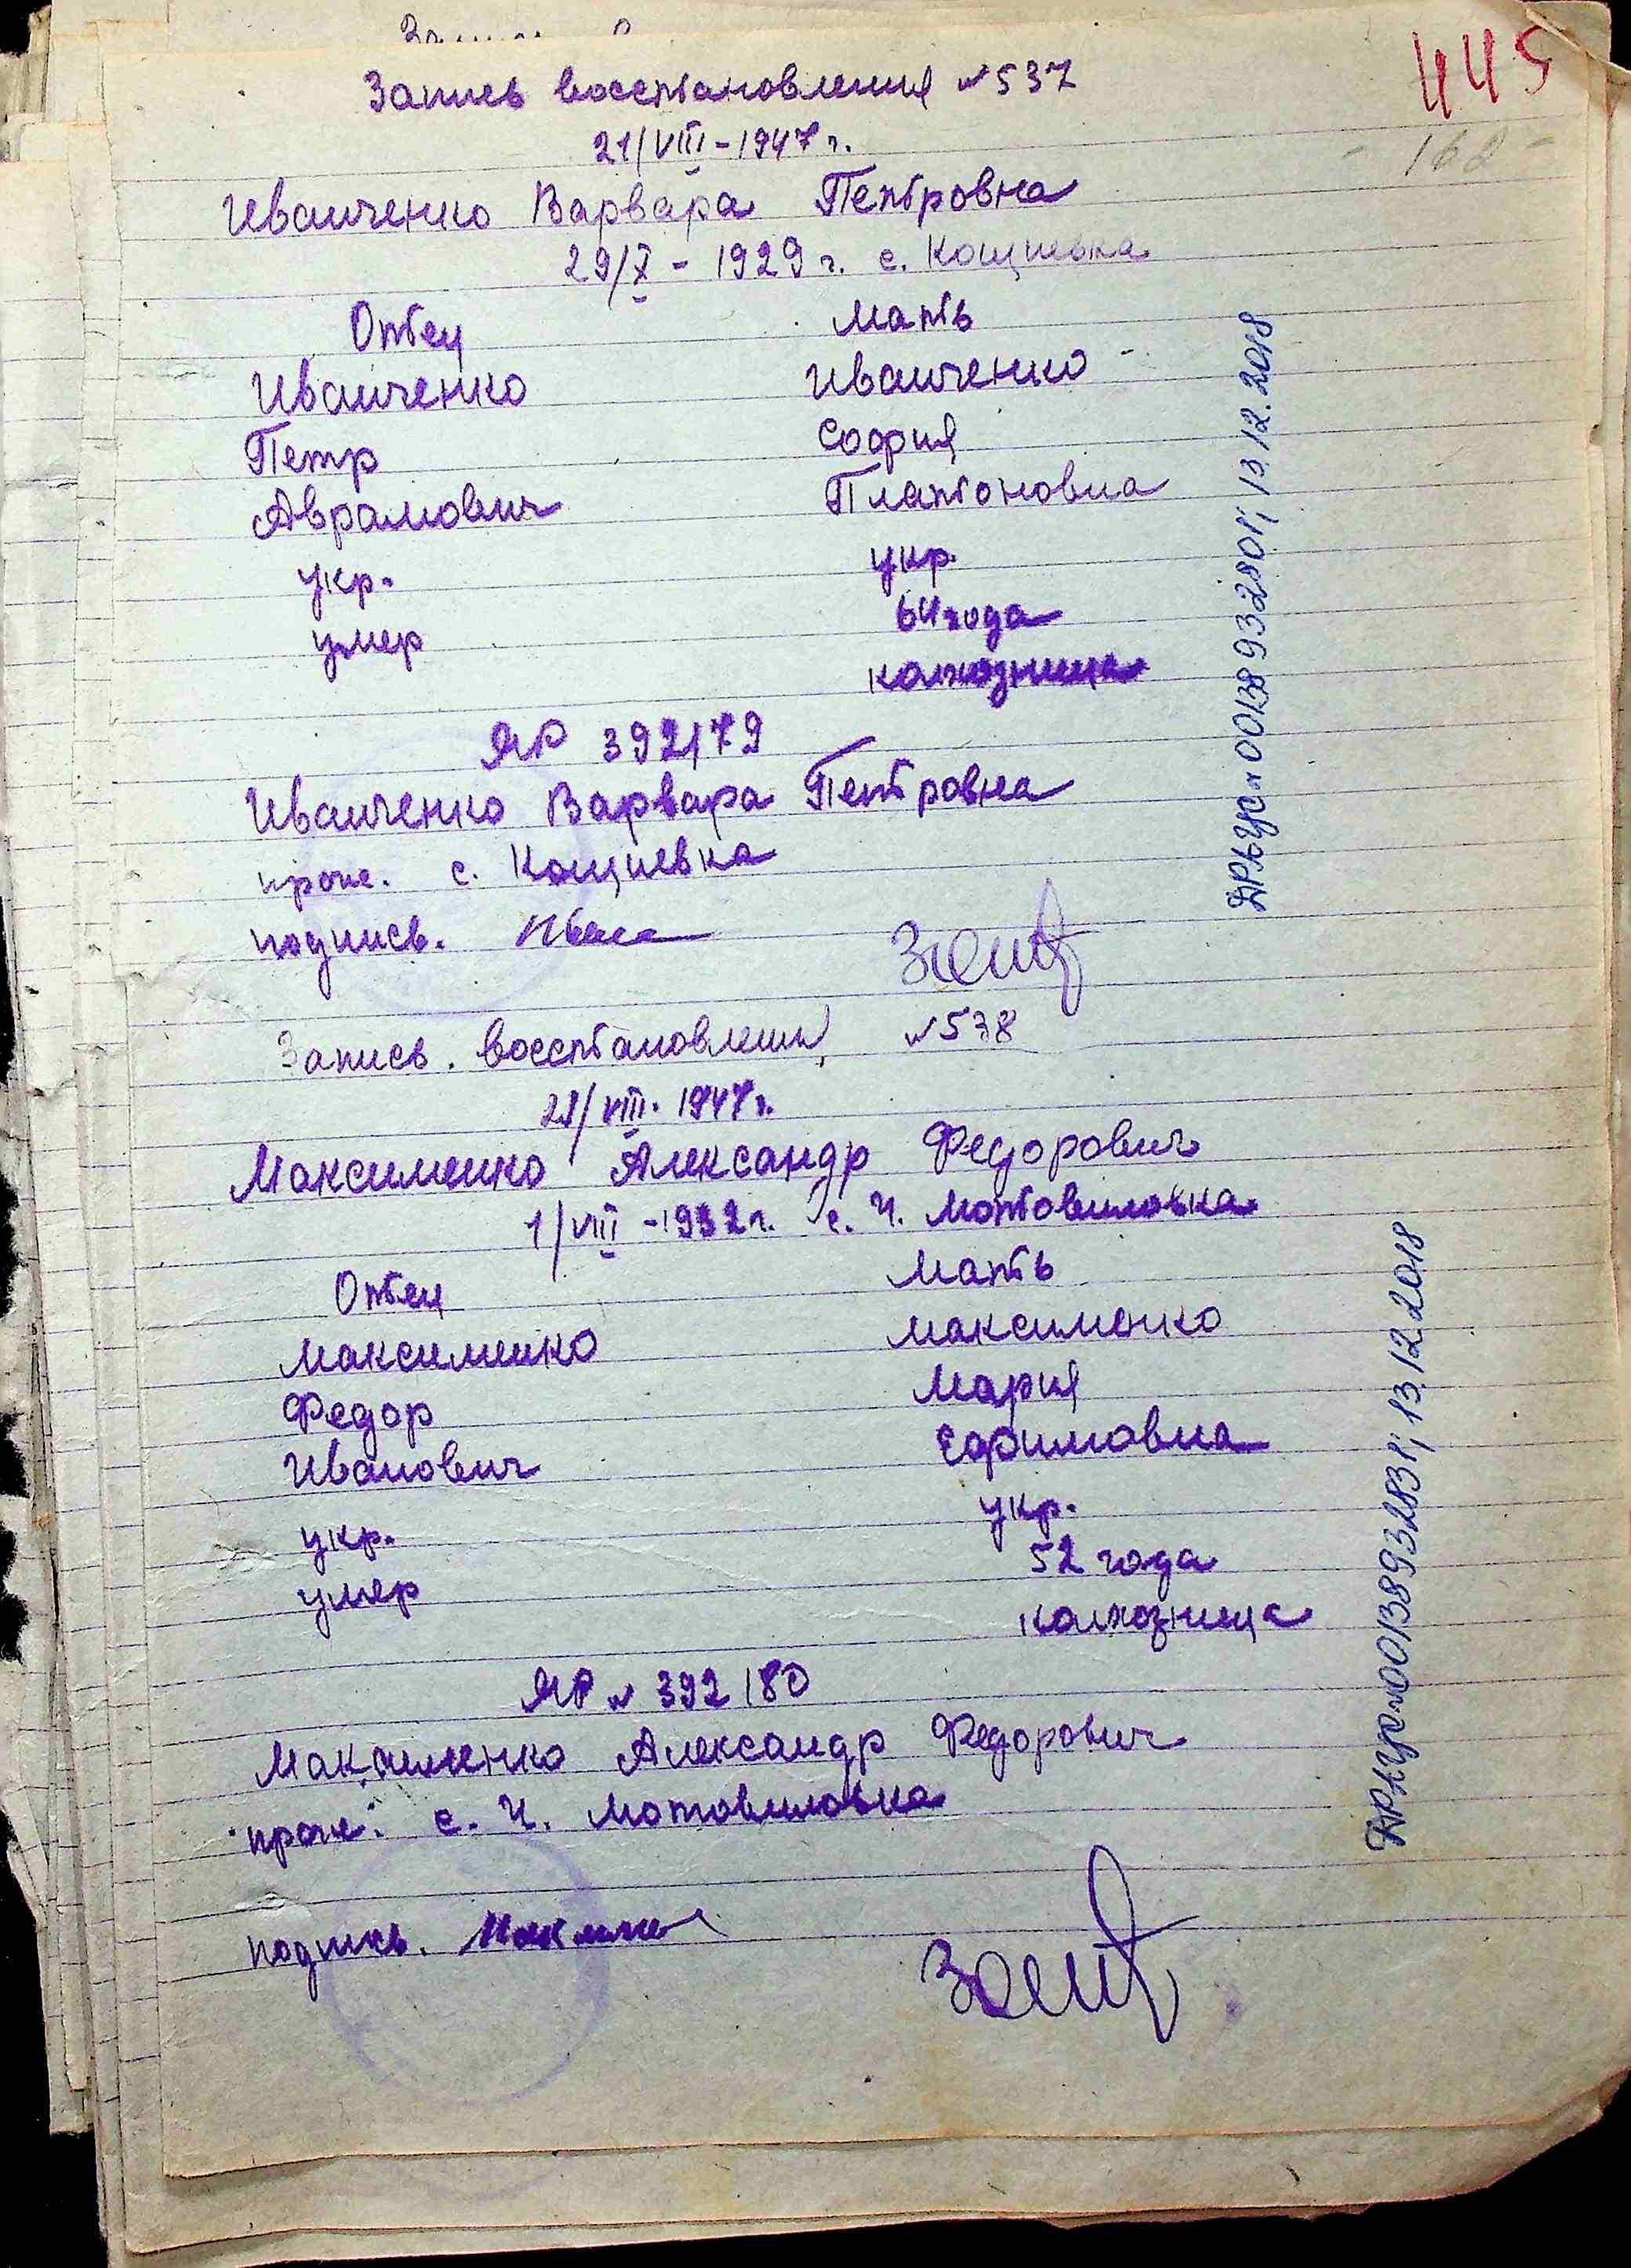 445
162
Запись восстановления №537
21/VIII-1947 г.
Иванченко Варвара Петровна
29/X - 1929 г. с. Кощиевка
Отец Мать
Иванченко Иванченко
Петр София
Аврамович Платоновна
укр. укр.
умер 64 года
колхозница
ЯР 392179
Иванченко Варвара Петровна
прож. с. Кощиевка
подпись.
Запись восстановления №538
21/VIII. 1947 г.
Максименко Александр Федорович
1/VIII - 1932 г. с. Ч. Мотовиловка
Отец Мать
Максименко Максименко
Федор Мария
Иванович Ефимовна
укр. укр.
умер 52 года
колхозница
ЯР № 392180
Максименко Александр Федорович
прож. с. Ч. Мотовиловка
подпись.
ДРАЦС 00138932801; 13.12.2018
ДРАЦС 00138932831; 13.12.2018